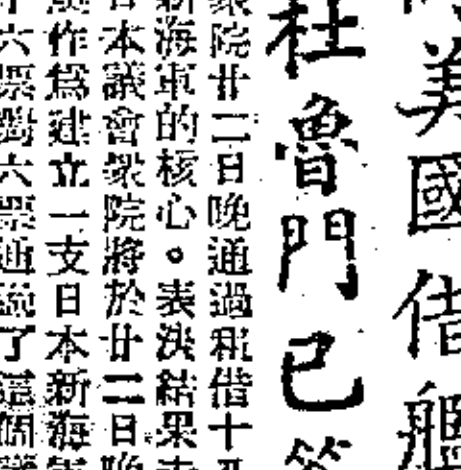 美國借艦
杜魯門已
衆院廿二日晚通過租借十五
新海軍的核心。表決結果
日本議會衆院將於廿二日晚
作爲建立一支日本新海軍
六票對六票通過了這個議